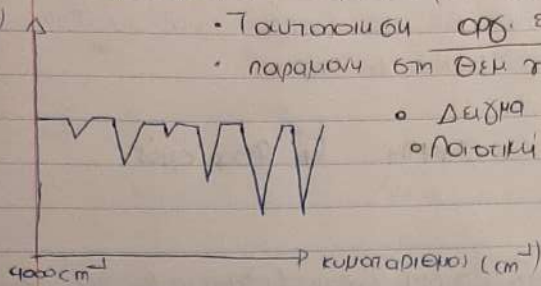 )
• Ταυτοποιηση οργ. ε
• παραμονη στη Θεμ γ
∘ Δειγμα
∘ Ποιοτικη
4000cm⁻¹
κυματαριθμοι (cm⁻¹)